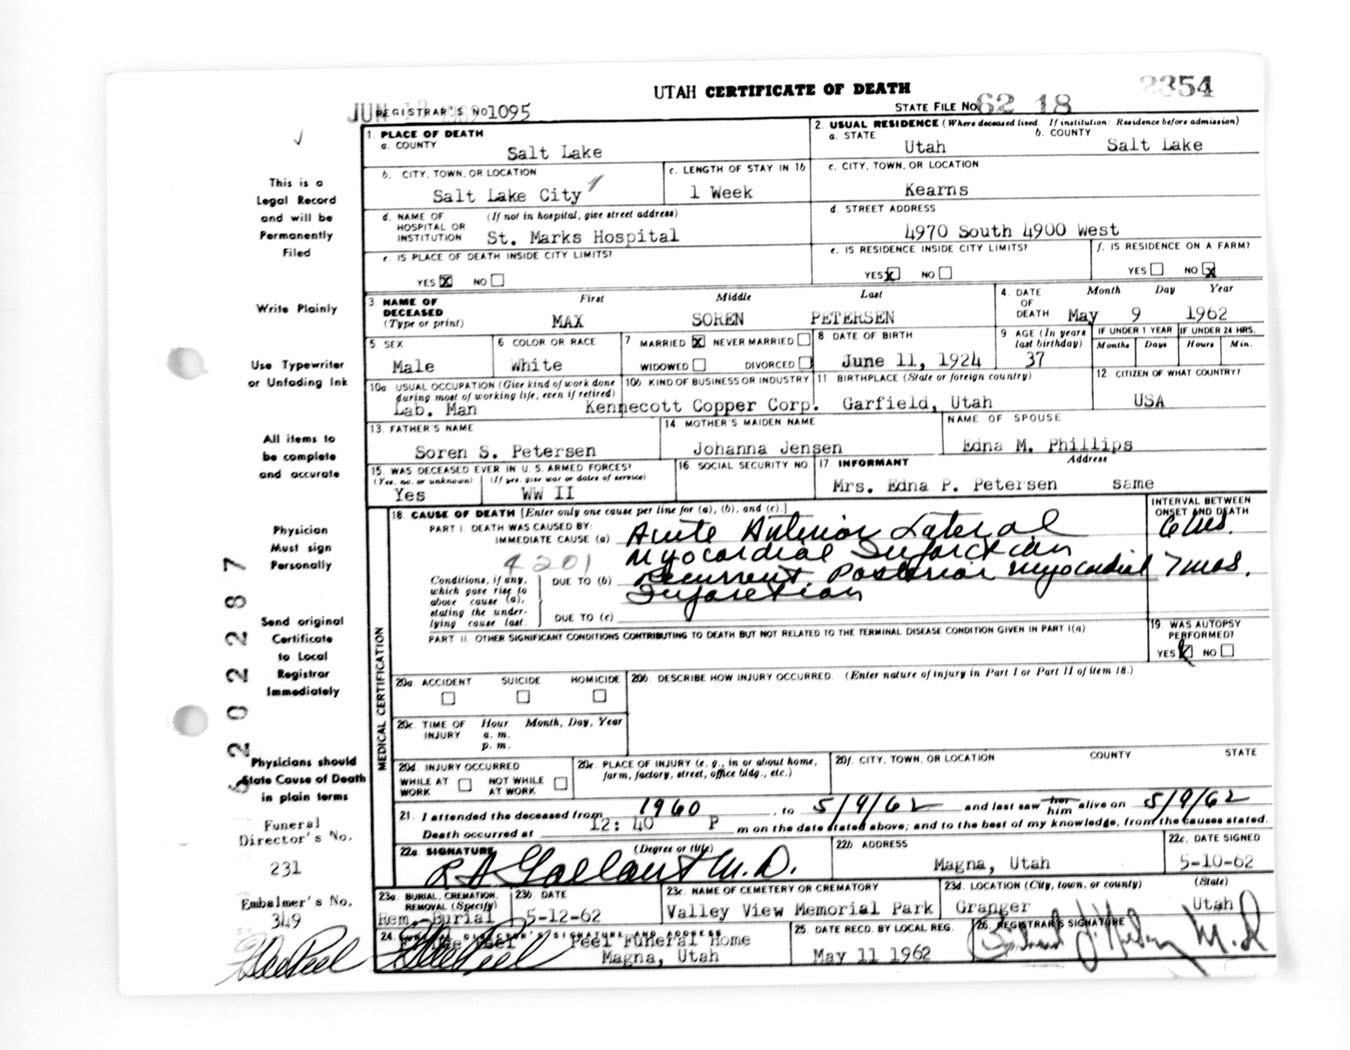 UTAH CERTIFICATE OF DEATH
2354
JUN 12
REGISTRAR'S NO 1095
STATE FILE NO. 62 18
1. PLACE OF DEATH
a. COUNTY
Salt Lake
2. USUAL RESIDENCE (Where deceased lived. If institution: Residence before admission)
a. STATE
Utah
b. COUNTY
Salt Lake
b. CITY, TOWN, OR LOCATION
Salt Lake City
c. LENGTH OF STAY IN 1b
1 Week
c. CITY, TOWN, OR LOCATION
Kearns
d. NAME OF HOSPITAL OR INSTITUTION
(If not in hospital, give street address)
St. Marks Hospital
d. STREET ADDRESS
4970 South 4900 West
e. IS PLACE OF DEATH INSIDE CITY LIMITS?
YES X NO
e. IS RESIDENCE INSIDE CITY LIMITS?
YES X NO
f. IS RESIDENCE ON A FARM?
YES NO X
3 NAME OF DECEASED (Type or print)
First Middle Last
MAX SOREN PETERSEN
4. DATE OF DEATH
Month Day Year
May 9 1962
5 SEX
Male
6 COLOR OR RACE
White
7 MARRIED X NEVER MARRIED
WIDOWED DIVORCED
8 DATE OF BIRTH
June 11, 1924
9 AGE (In years last birthday)
37
IF UNDER 1 YEAR
Months Days
IF UNDER 24 HRS.
Hours Min.
10a USUAL OCCUPATION (Give kind of work done during most of working life, even if retired)
Lab. Man
10b KIND OF BUSINESS OR INDUSTRY
Kennecott Copper Corp.
11 BIRTHPLACE (State or foreign country)
Garfield, Utah
12 CITIZEN OF WHAT COUNTRY?
USA
13. FATHER'S NAME
Soren S. Petersen
14 MOTHER'S MAIDEN NAME
Johanna Jensen
NAME OF SPOUSE
Edna M. Phillips
15 WAS DECEASED EVER IN U. S. ARMED FORCES?
(Yes, no, or unknown) (If yes, give war or dates of service)
Yes WW II
16 SOCIAL SECURITY NO.
17 INFORMANT Address
Mrs. Edna P. Petersen same
MEDICAL CERTIFICATION
18. CAUSE OF DEATH [Enter only one cause per line for (a), (b), and (c).]
INTERVAL BETWEEN ONSET AND DEATH
PART I. DEATH WAS CAUSED BY:
IMMEDIATE CAUSE (a)
Acute Anterior Lateral
Myocardial Infarction
4201
Conditions, if any, which gave rise to above cause (a), stating the underlying cause last.
DUE TO (b)
Recurrent Posterior Myocardial
Infarction
7 mos.
DUE TO (c)
PART II. OTHER SIGNIFICANT CONDITIONS CONTRIBUTING TO DEATH BUT NOT RELATED TO THE TERMINAL DISEASE CONDITION GIVEN IN PART I(a)
19. WAS AUTOPSY PERFORMED?
YES X NO
20a. ACCIDENT SUICIDE HOMICIDE
20b. DESCRIBE HOW INJURY OCCURRED. (Enter nature of injury in Part I or Part II of item 18.)
20c. TIME OF INJURY
Hour Month, Day, Year
a. m.
p. m.
20d. INJURY OCCURRED
WHILE AT WORK NOT WHILE AT WORK
20e. PLACE OF INJURY (e. g., in or about home, farm, factory, street, office bldg., etc.)
20f. CITY, TOWN, OR LOCATION COUNTY STATE
21. I attended the deceased from 1960, to 5/9/62 and last saw her him alive on 5/9/62
Death occurred at 12:40 P m on the date stated above; and to the best of my knowledge, from the causes stated.
22a. SIGNATURE (Degree or title)
L A Gallant M.D.
22b. ADDRESS
Magna, Utah
22c. DATE SIGNED
5-10-62
23a. BURIAL, CREMATION, REMOVAL (Specify)
Rem. Burial
23b. DATE
5-12-62
23c. NAME OF CEMETERY OR CREMATORY
Valley View Memorial Park
23d. LOCATION (City, town, or county) (State)
Granger Utah
24. FUNERAL DIRECTOR'S SIGNATURE AND ADDRESS
Peel Funeral Home
Magna, Utah
25. DATE RECD. BY LOCAL REG.
May 11 1962
26. REGISTRAR'S SIGNATURE
M.D
This is a
Legal Record
and will be
Permanently
Filed
Write Plainly
Use Typewriter
or Unfading Ink
All items to
be complete
and accurate
Physician
Must sign
Personally
Send original
Certificate
to Local
Registrar
Immediately
Physicians should
State Cause of Death
in plain terms
Funeral
Director's No.
231
Embalmer's No.
349